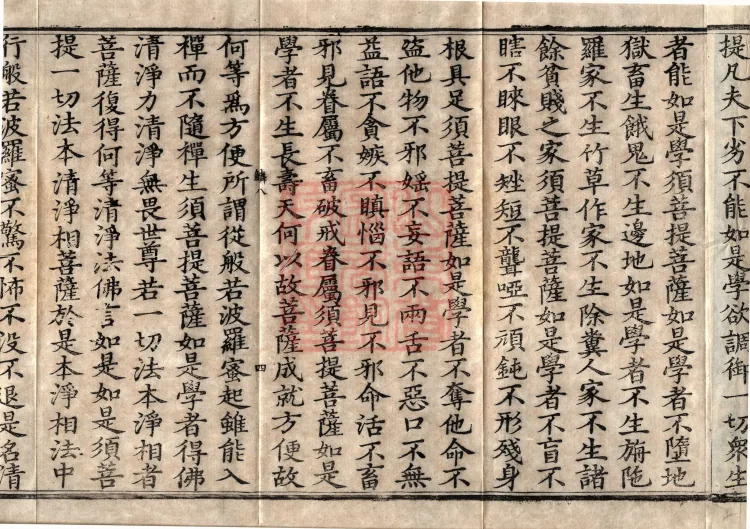 提凡夫下劣不能如是學欲調御一切衆生
者能如是學須菩提菩薩如是學者不墮地
獄畜生餓鬼不生邊地如是學者不生旃陁
羅家不生竹草作家不生除糞人家不生諸
餘貧賤之家須菩提菩薩如是學者不盲不
瞎不睞眼不矬短不聾啞不頑鈍不形殘身
根具足須菩提菩薩如是學者不奪他命不
盜他物不邪婬不妄語不兩舌不惡口不無
益語不貪嫉不瞋惱不邪見不邪命活不畜
邪見眷屬不畜破戒眷屬須菩提菩薩如是
學者不生長壽天何以故菩薩成就方便故
八 四
何等爲方便所謂從般若波羅蜜起雖能入
禪而不隨禪生須菩提菩薩如是學者得佛
清淨力清淨無畏世尊若一切法本淨相者
菩薩復得何等清淨法佛言如是如是須菩
提一切法本清淨相菩薩於是本淨相法中
行般若波羅蜜不驚不怖不没不退是名清